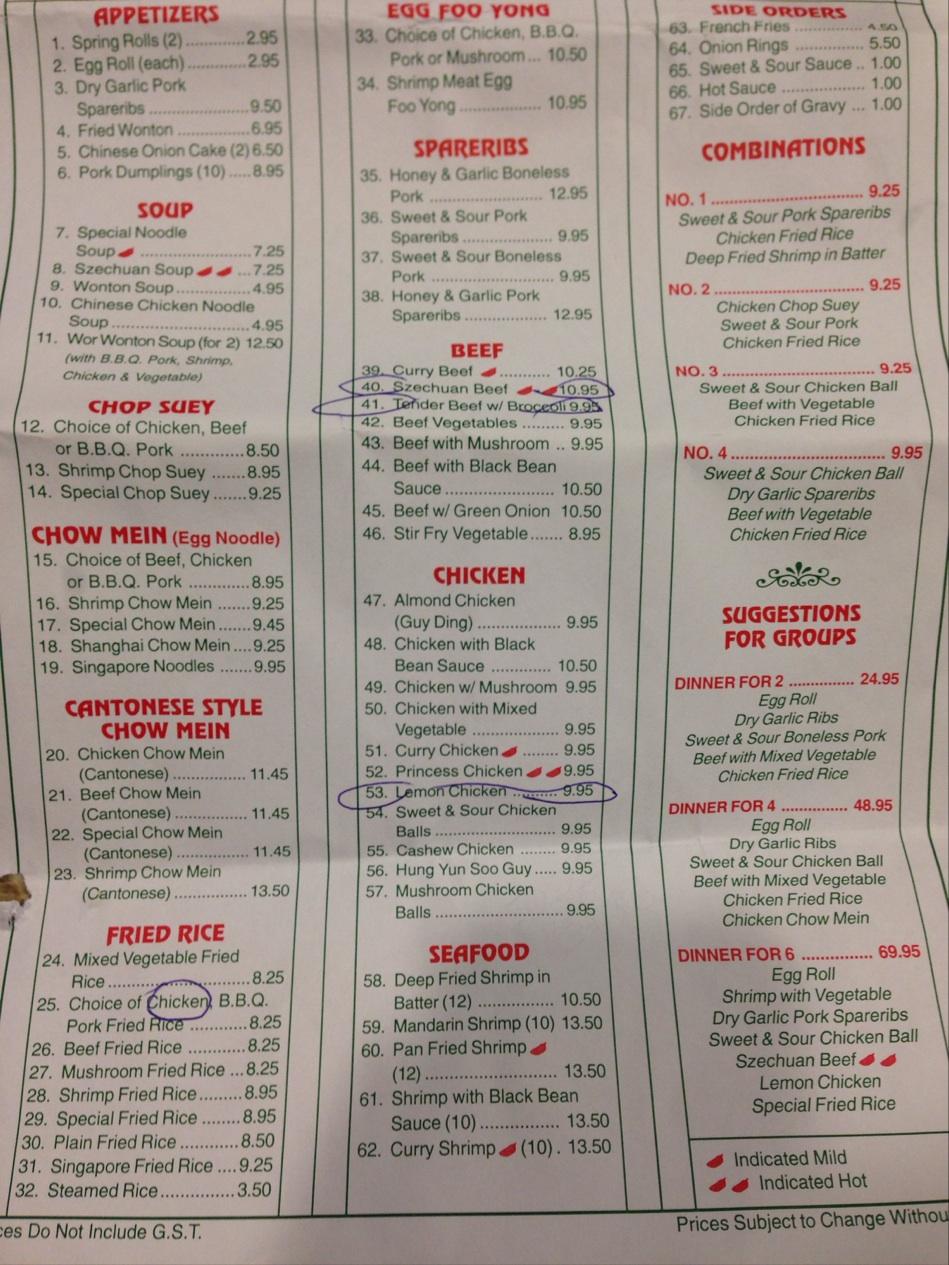 APPETIZERS
1. Spring Rolls (2) ............... 2.95
2. Egg Roll (each) ............... 2.95
3. Dry Garlic Pork
Spareribs ..................... 9.50
4. Fried Wonton .................. 6.95
5. Chinese Onion Cake (2) 6.50
6. Pork Dumplings (10) ..... 8.95
SOUP
7. Special Noodle
Soup ..................... 7.25
8. Szechuan Soup ... 7.25
9. Wonton Soup ............... 4.95
10. Chinese Chicken Noodle
Soup .......................... 4.95
11. Wor Wonton Soup (for 2) 12.50
(with B.B.Q. Pork, Shrimp,
Chicken & Vegetable)
CHOP SUEY
12. Choice of Chicken, Beef
or B.B.Q. Pork ............... 8.50
13. Shrimp Chop Suey ........ 8.95
14. Special Chop Suey ....... 9.25
CHOW MEIN (Egg Noodle)
15. Choice of Beef, Chicken
or B.B.Q. Pork ............ 8.95
16. Shrimp Chow Mein ....... 9.25
17. Special Chow Mein ...... 9.45
18. Shanghai Chow Mein .... 9.25
19. Singapore Noodles ....... 9.95
CANTONESE STYLE
CHOW MEIN
20. Chicken Chow Mein
(Cantonese) ................ 11.45
21. Beef Chow Mein
(Cantonese) ................ 11.45
22. Special Chow Mein
(Cantonese) ................ 11.45
23. Shrimp Chow Mein
(Cantonese) ................ 13.50
FRIED RICE
24. Mixed Vegetable Fried
Rice .......................... 8.25
25. Choice of Chicken, B.B.Q.
Pork Fried Rice ............ 8.25
26. Beef Fried Rice ............ 8.25
27. Mushroom Fried Rice ... 8.25
28. Shrimp Fried Rice ......... 8.95
29. Special Fried Rice ........ 8.95
30. Plain Fried Rice ........... 8.50
31. Singapore Fried Rice .... 9.25
32. Steamed Rice ............... 3.50
EGG FOO YONG
33. Choice of Chicken, B.B.Q.
Pork or Mushroom ... 10.50
34. Shrimp Meat Egg
Foo Yong .................. 10.95
SPARERIBS
35. Honey & Garlic Boneless
Pork ......................... 12.95
36. Sweet & Sour Pork
Spareribs .................... 9.95
37. Sweet & Sour Boneless
Pork .......................... 9.95
38. Honey & Garlic Pork
Spareribs .................. 12.95
BEEF
39. Curry Beef ............ 10.25
40. Szechuan Beef 10.95
41. Tender Beef w/ Broccoli 9.95
42. Beef Vegetables ......... 9.95
43. Beef with Mushroom .. 9.95
44. Beef with Black Bean
Sauce ....................... 10.50
45. Beef w/ Green Onion 10.50
46. Stir Fry Vegetable ....... 8.95
CHICKEN
47. Almond Chicken
(Guy Ding) .................. 9.95
48. Chicken with Black
Bean Sauce ............. 10.50
49. Chicken w/ Mushroom 9.95
50. Chicken with Mixed
Vegetable ................... 9.95
51. Curry Chicken ........ 9.95
52. Princess Chicken 9.95
53. Lemon Chicken .......... 9.95
54. Sweet & Sour Chicken
Balls .......................... 9.95
55. Cashew Chicken ......... 9.95
56. Hung Yun Soo Guy ..... 9.95
57. Mushroom Chicken
Balls ........................... 9.95
SEAFOOD
58. Deep Fried Shrimp in
Batter (12) ................. 10.50
59. Mandarin Shrimp (10) 13.50
60. Pan Fried Shrimp
(12) ............................ 13.50
61. Shrimp with Black Bean
Sauce (10) ................. 13.50
62. Curry Shrimp (10) . 13.50
SIDE ORDERS
63. French Fries ............ 4.50
64. Onion Rings ............. 5.50
65. Sweet & Sour Sauce .. 1.00
66. Hot Sauce ................ 1.00
67. Side Order of Gravy ... 1.00
COMBINATIONS
NO. 1 ................................ 9.25
Sweet & Sour Pork Spareribs
Chicken Fried Rice
Deep Fried Shrimp in Batter
NO. 2 ................................ 9.25
Chicken Chop Suey
Sweet & Sour Pork
Chicken Fried Rice
NO. 3 ................................ 9.25
Sweet & Sour Chicken Ball
Beef with Vegetable
Chicken Fried Rice
NO. 4 ................................ 9.95
Sweet & Sour Chicken Ball
Dry Garlic Spareribs
Beef with Vegetable
Chicken Fried Rice
SUGGESTIONS
FOR GROUPS
DINNER FOR 2 .............. 24.95
Egg Roll
Dry Garlic Ribs
Sweet & Sour Boneless Pork
Beef with Mixed Vegetable
Chicken Fried Rice
DINNER FOR 4 .............. 48.95
Egg Roll
Dry Garlic Ribs
Sweet & Sour Chicken Ball
Beef with Mixed Vegetable
Chicken Fried Rice
Chicken Chow Mein
DINNER FOR 6 ................ 69.95
Egg Roll
Shrimp with Vegetable
Dry Garlic Pork Spareribs
Sweet & Sour Chicken Ball
Szechuan Beef
Lemon Chicken
Special Fried Rice
Indicated Mild
Indicated Hot
Do Not Include G.S.T.
Prices Subject to Change